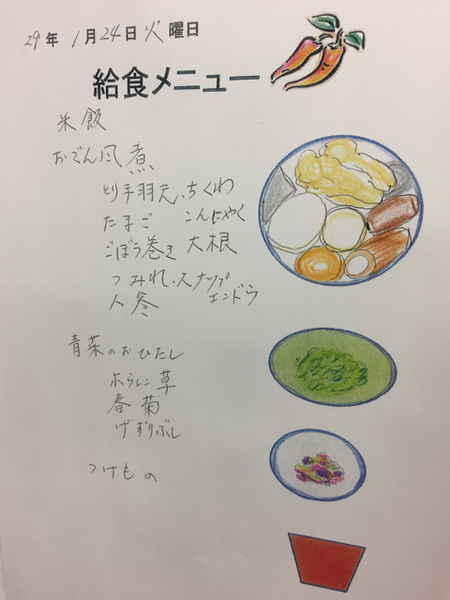 29年 1月24日火曜日
給食メニュー
米飯
おでん風煮
とり手羽元、ちくわ
たまご こんにゃく
ごぼう巻き 大根
つみれ・スナップ
人参 エンドウ
青菜のおひたし
ホウレン草
春菊
けずりぶし
つけもの